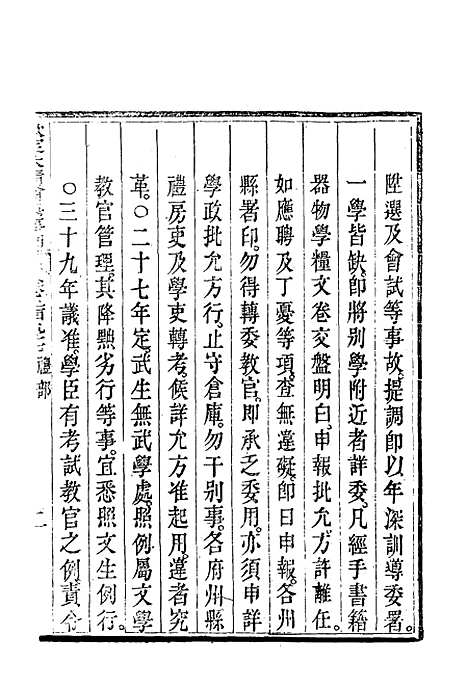 陞選及會試等事故。提調即以年深訓導委署。
一學皆缺。即將別學附近者詳委。凡經手書籍
器物學糧文卷交盤明白。申報批允。方許離任。
如應聘及丁憂等項。查無違礙。即日申報。各州
縣署印。勿得轉委教官。即承乏委用。亦須申詳
學政批允方行。止守倉庫。勿干別事。各府州縣
禮房吏及學吏轉考。候詳允方准起用。違者究
革。〇二十七年定。武生無武學處。照例屬文學
教官管理。其降黜劣行等事。宜悉照文生例行。
〇三十九年議准。學臣有考試教官之例。責令
禮部
二